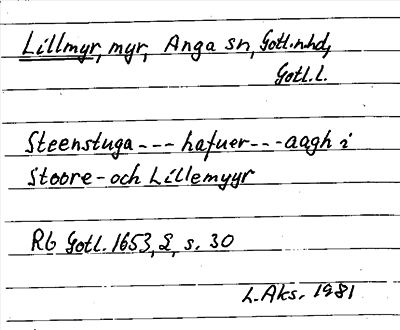 Lillmyr, myr, Anga sn, Gotl. n. hd,
Gotl. l.
Steenstuga --- hafuer --- aagh i
Stoore- och Lillemyyr
Rb Gotl. 1653, 2, s. 30
L. Aks. 1981